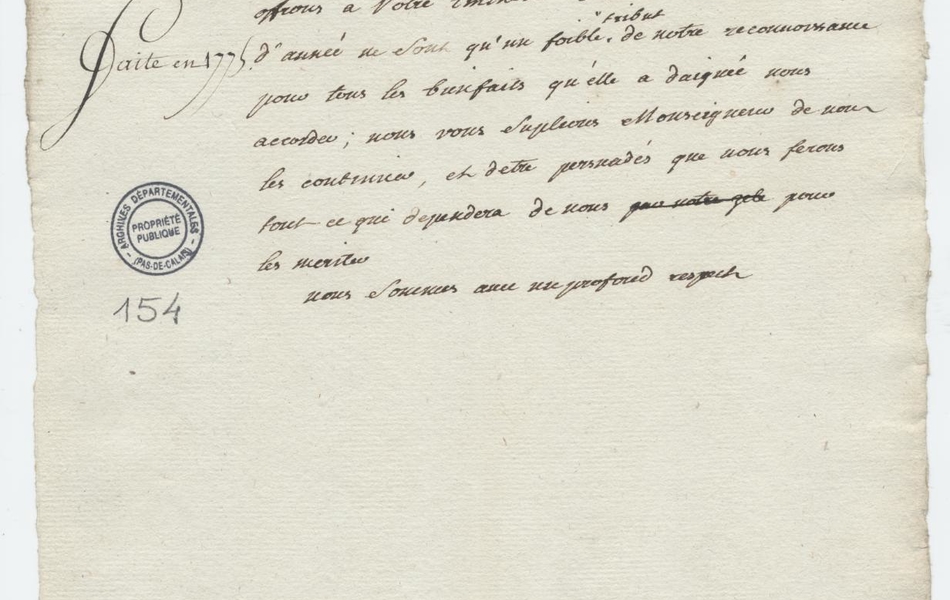 offrons a Votre Emine
tribut
d'année ne sont qu'un foible de notre reconnoissance
Faite en 1775.
pour tous les bienfaits qu'elle a daigné nous
accorder ; nous vous suplions Monseigneur de nous
les continuer, et detre persuadés que nous ferons
tout ce qui dependera de nous par notre zele pour
les meriter
nous sommes avec un profond respect
ARCHIVES DÉPARTEMENTALES
PROPRIÉTÉ
PUBLIQUE
(PAS-DE-CALAIS)
154